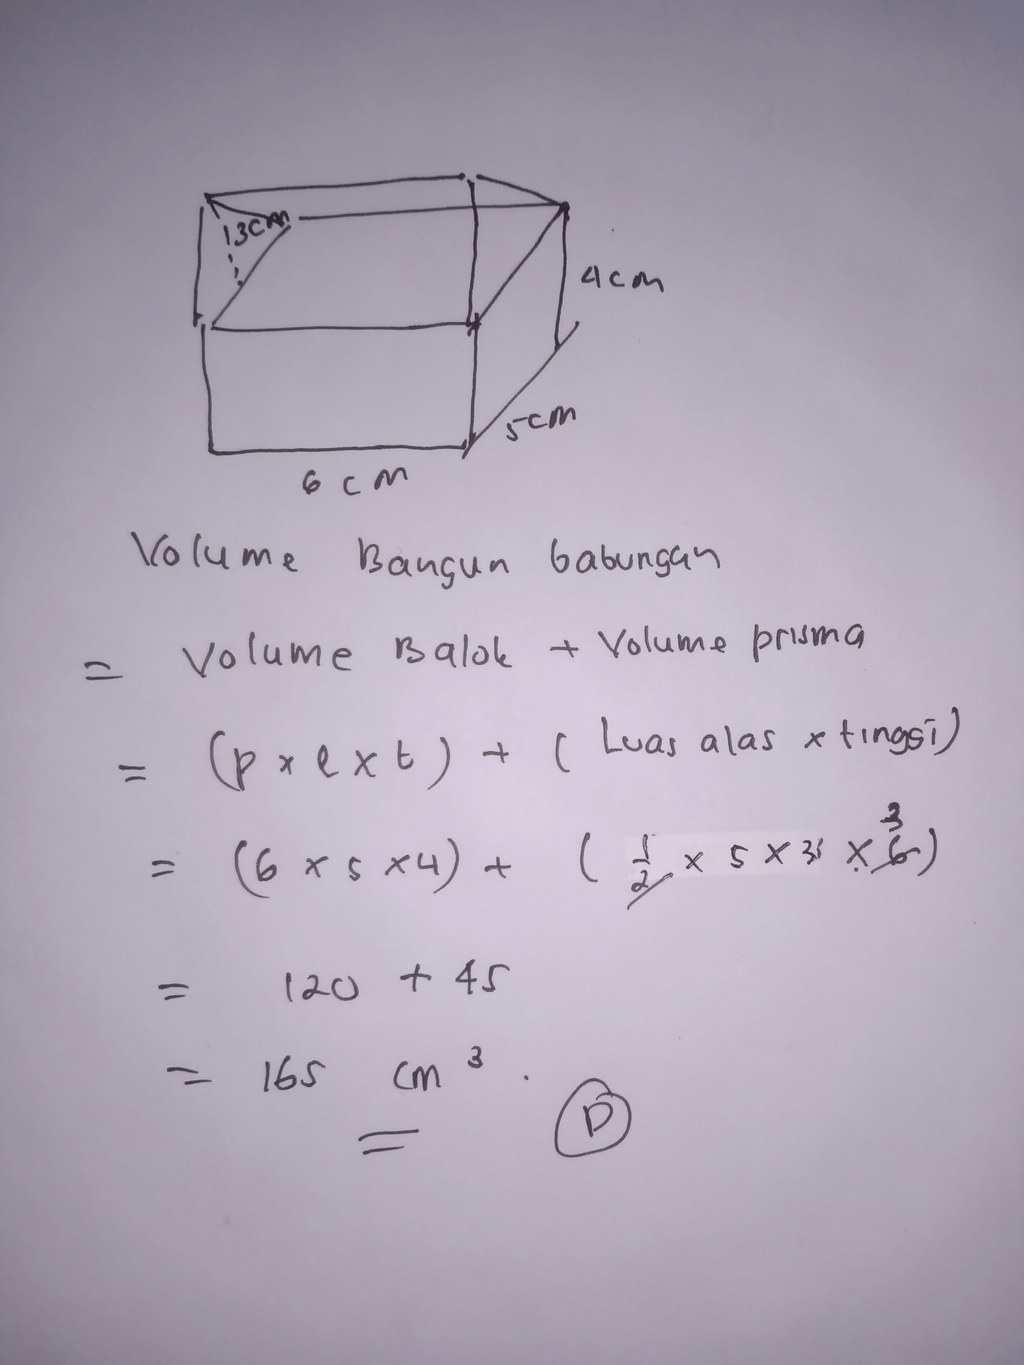 13cm
4cm
5cm
6 cm
Volume Bangun Gabungan
= Volume Balok + Volume prisma
= (p x l x t) + ( Luas alas x tinggi)
= (6 x 5 x 4) + ( 1/2 x 5 x 3 x 6 3)
= 120 + 45
= 165 cm³.
D